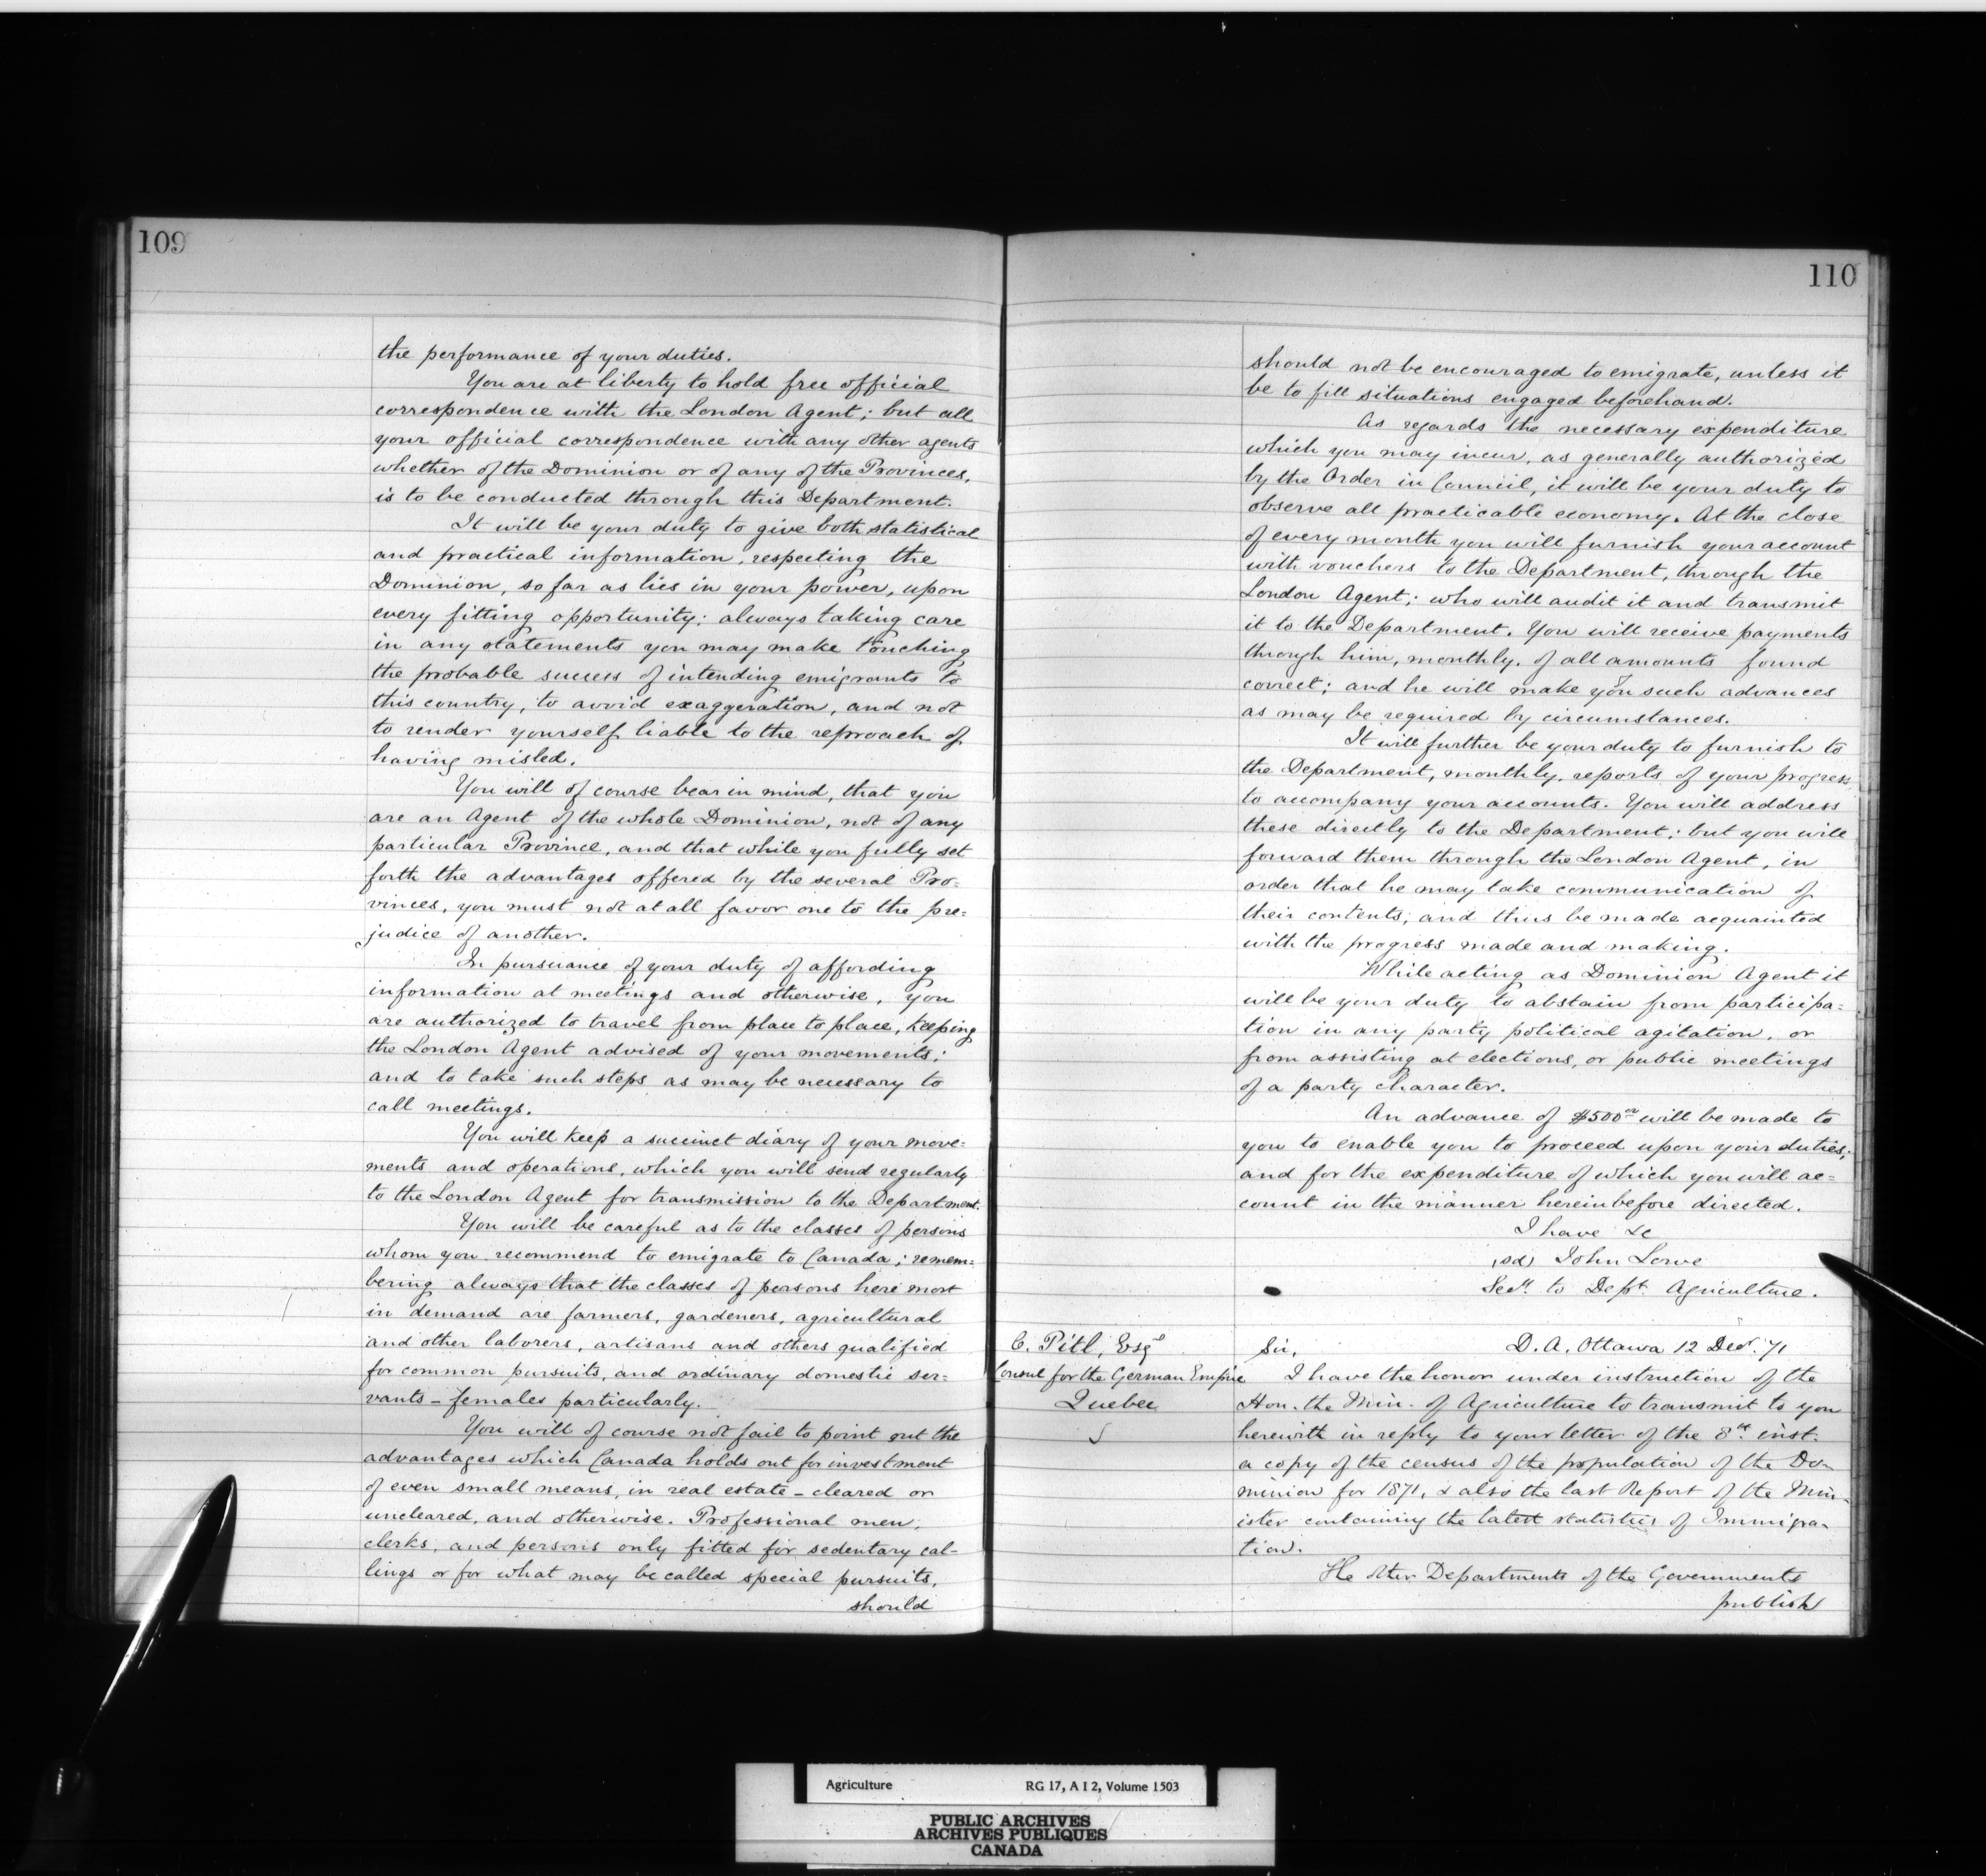 109
the performance of your duties.
You are at liberty to hold free official
correspondence with the London Agent; but all
your official correspondence with any other agents
whether of the Dominion or of any of the Provinces,
is to be conducted through this Department.
It will be your duty to give both statistical
and practical information, respecting the
Dominion, so far as lies in your power, upon
every fitting opportunity; always taking care
in any statements you may make touching
the probable success of intending emigrants to
this country, to avoid exaggeration, and not
to render yourself liable to the reproach of
having misled.
You will of course bear in mind, that you
are an Agent of the whole Dominion, not of any
particular Province, and that while you fully set
forth the advantages offered by the several Pro=
vinces, you must not at all favor one to the pre=
judice of another.
In pursuance of your duty of affording
information at meetings and otherwise, you
are authorized to travel from place to place, keeping
the London Agent advised of your movements;
and to take such steps as may be necessary to
call meetings.
You will keep a succinct diary of your move=
ments and operations, which you will send regularly
to the London Agent for transmission to the Department.
You will be careful as to the classes of persons
whom you recommend to emigrate to Canada; remem=
bering always that the classes of persons here most
in demand are farmers, gardeners, agricultural
and other laborers, artisans and others qualified
for common pursuits, and ordinary domestic ser=
vants - females particularly.
You will of course not fail to point out the
advantages which Canada holds out for investment
of even small means, in real estate - cleared or
uncleared, and otherwise. Professional men,
clerks, and persons only fitted for sedentary cal-
lings or for what may be called special pursuits,
should
110
should not be encouraged to emigrate, unless it
be to fill situations engaged beforehand.
As regards the necessary expenditure
which you may incur, as generally authorized
by the Order in Council, it will be your duty to
observe all practicable economy. At the close
of every month you will furnish your account
with vouchers to the Department, through the
London Agent; who will audit it and transmit
it to the Department. You will receive payments
through him, monthly, of all amounts found
correct; and he will make you such advances
as may be required by circumstances.
It will further be your duty to furnish to
the Department, monthly, reports of your progress,
to accompany your accounts. You will address
these directly to the Department; but you will
forward them through the London Agent, in
order that he may take communication of
their contents, and thus be made acquainted
with the progress made and making.
While acting as Dominion Agent it
will be your duty to abstain from participa=
tion in any party political agitation, or
from assisting at elections, or public meetings
of a party character.
An advance of $500 00 will be made to
you to enable you to proceed upon your duties;
and for the expenditure of which you will ac=
count in the manner hereinbefore directed.
I have &c
(sd) John Lowe
Secy. to Dept. Agriculture.
C. Pitl, Esqe
Consul for the German Empire
Quebec
Sir, D. A. Ottawa 12 Decr. 71
I have the honor under instruction of the
Hon. the Min. of Agriculture to transmit to you
herewith in reply to your letter of the 8th inst.
a copy of the census of the population of the Do-
minion for 1871, & also the last Report of the Min-
ister containing the latest statistics of Immigra-
tion.
The other Departments of the Governments
publish
Agriculture RG 17, A I 2, Volume 1503
PUBLIC ARCHIVES
ARCHIVES PUBLIQUES
CANADA